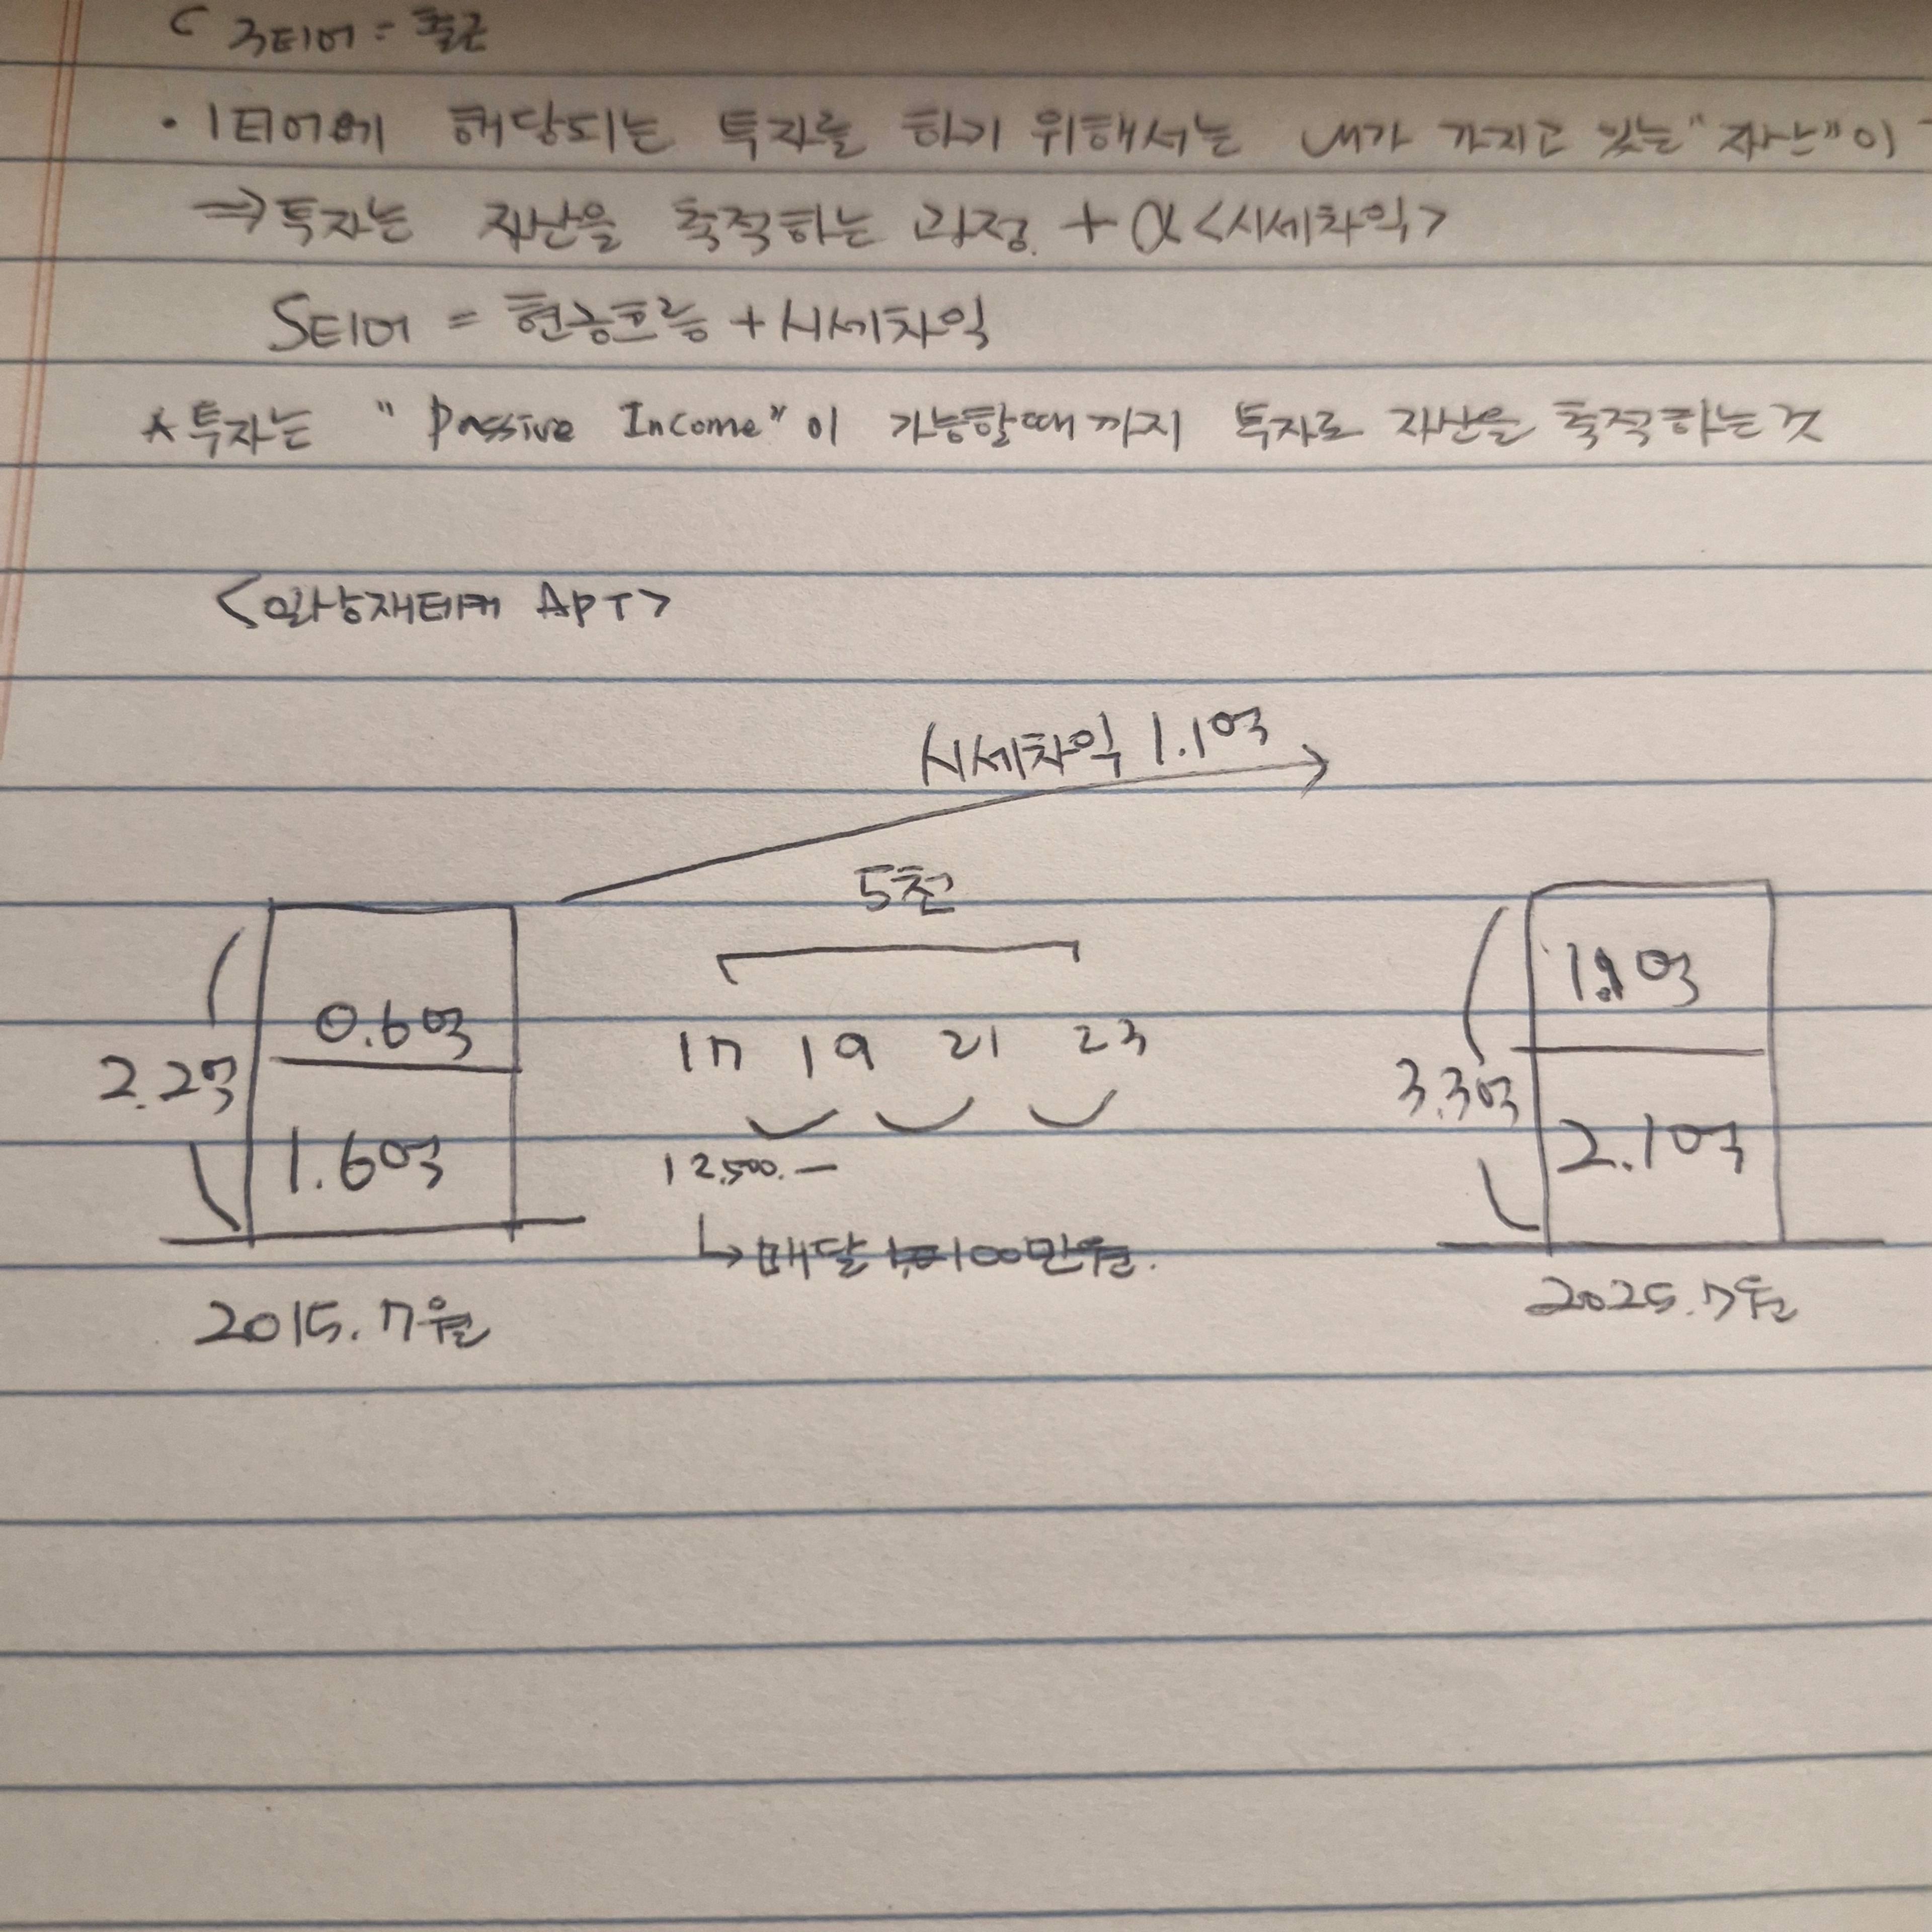 3티어 = 출근
· 1티어에 해당되는 투자를 하기 위해서는 내가 가지고 있는 "자산"이
⇒ 투자는 자산을 축적하는 과정. + α <시세차익>
S티어 = 현금흐름 + 시세차익
★ 투자는 "Passive Income"이 가능할때까지 투자로 자산을 축적하는것
<와상재테커 APT>
시세차익 1.1억
5천
0.6억
2.2억
1.6억
17 19 21 23
12,500.—
↳ 매달 100만원.
1.1억
3.3억
2.1억
2015.7월
2025.7월